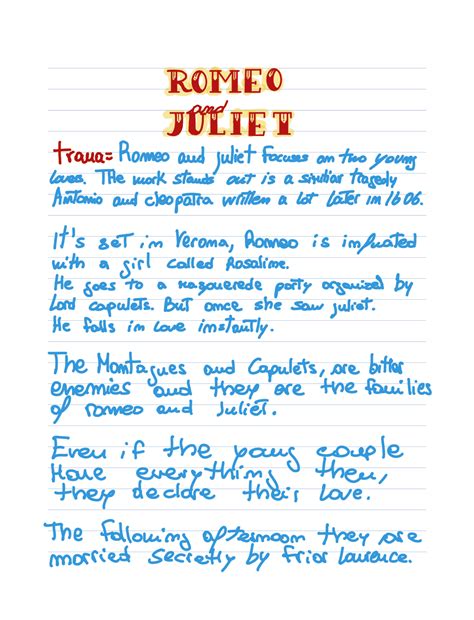 ROMEO
and
JULIET
trama= Romeo and juliet focuses on two young
loves. The work stands out is a similiar tragedy
Antonio and cleopatra written a lot later in 1606.
It's set in Verona, Romeo is infuated
with a girl called Rosaline.
He goes to a masquerede party organized by
Lord capulets. But once she saw juliet.
He falls in love instantly.
The Montagues and Capulets, are bitter
enemies and they are the families
of romeo and Juliet.
Even if the young couple
Have everything then,
they declare their love.
The following afternoon they are
married secretly by friar laurence.